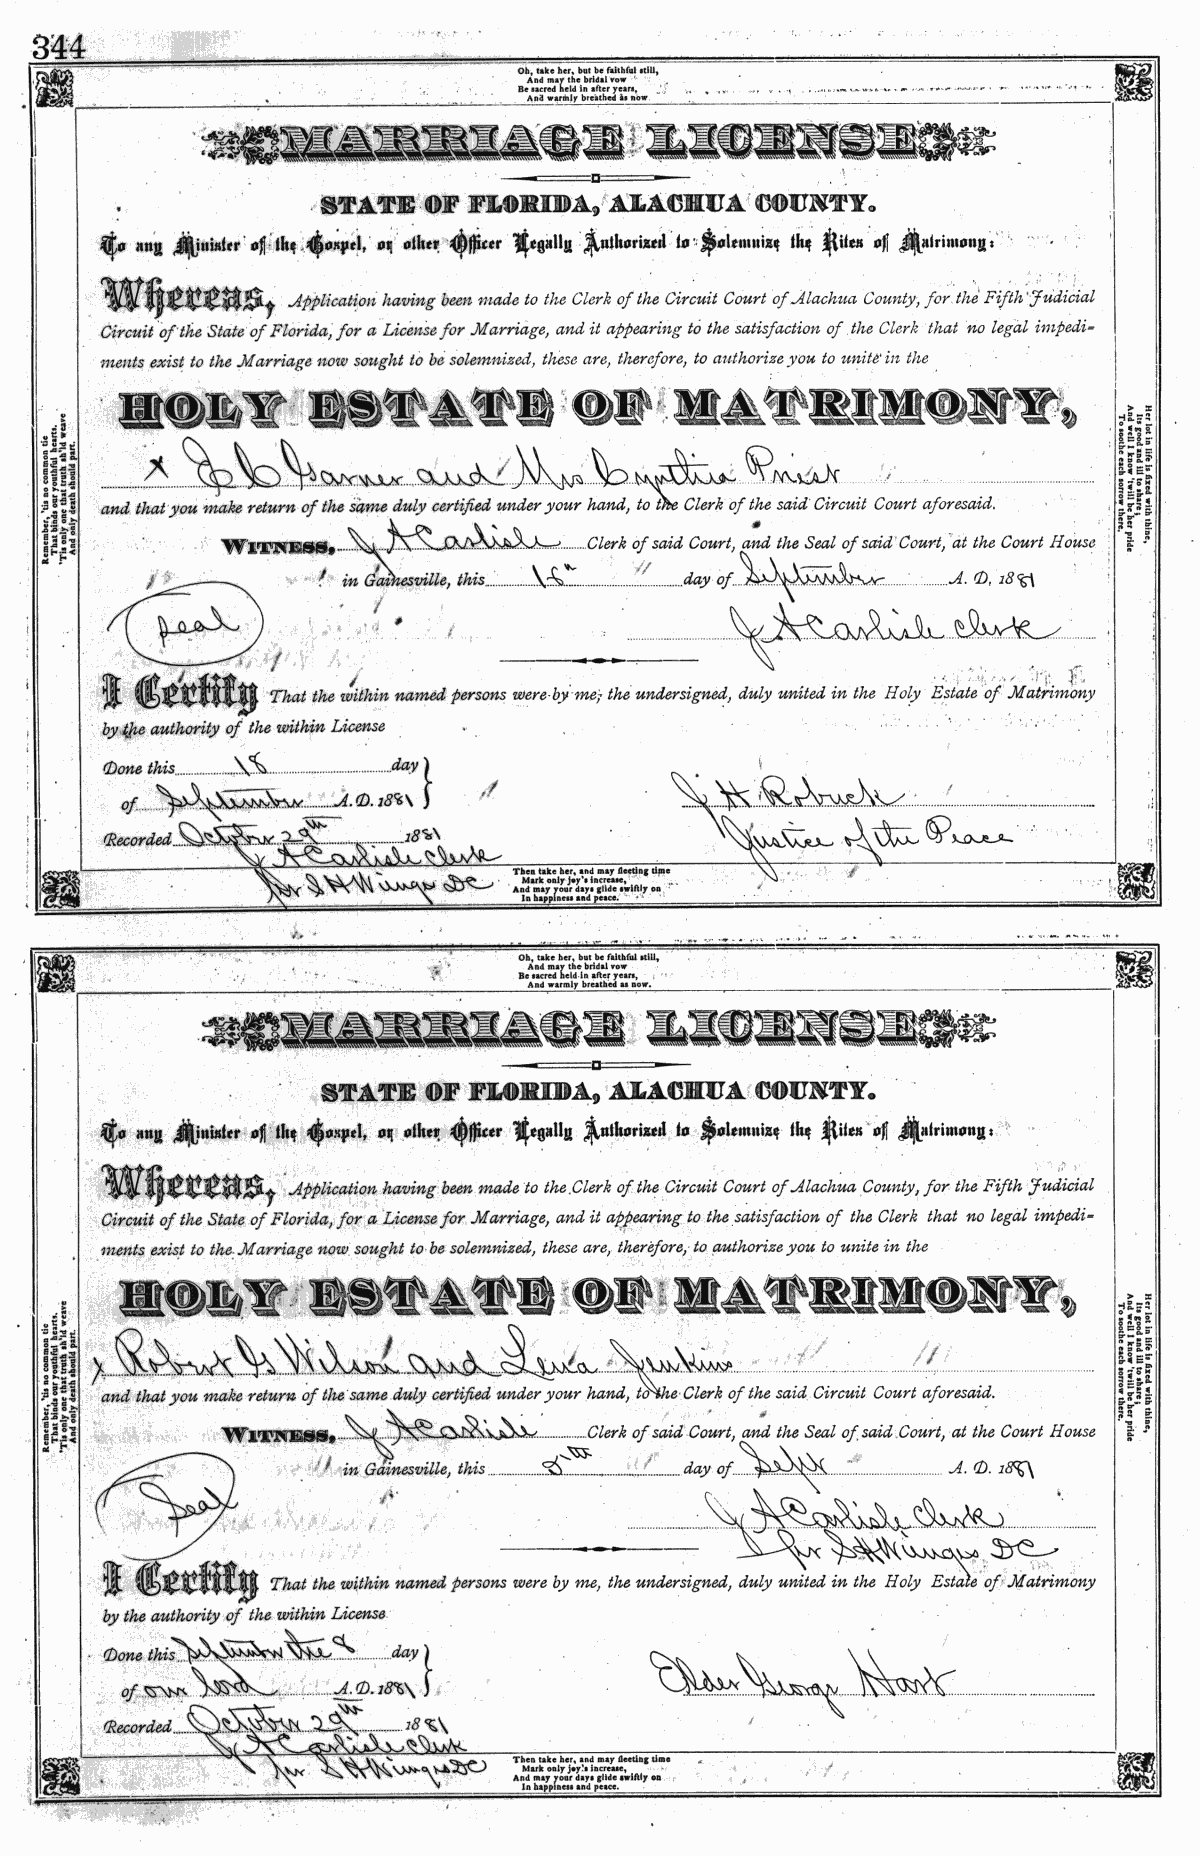 344
Oh, take her, but be faithful still,
And may the bridal vow
Be sacred held in after years,
And warmly breathed as now
MARRIAGE LICENSE
STATE OF FLORIDA, ALACHUA COUNTY.
To any Minister of the Gospel, or other Officer Legally Authorized to Solemnize the Rites of Matrimony:
Whereas, Application having been made to the Clerk of the Circuit Court of Alachua County, for the Fifth Judicial
Circuit of the State of Florida, for a License for Marriage, and it appearing to the satisfaction of the Clerk that no legal impedi-
ments exist to the Marriage now sought to be solemnized, these are, therefore, to authorize you to unite in the
HOLY ESTATE OF MATRIMONY,
x E C Garner and Mrs Cynthia Priest
and that you make return of the same duly certified under your hand, to the Clerk of the said Circuit Court aforesaid.
WITNESS, J A Carlisle Clerk of said Court, and the Seal of said Court, at the Court House
in Gainesville, this day of September A. D. 1881
Seal
J A Carlisle Clerk
I Certify That the within named persons were by me, the undersigned, duly united in the Holy Estate of Matrimony
by the authority of the within License
Done this 18 day
of September A. D. 1881
J H Robuck
Recorded October 29th 1881
Justice of the Peace
J A Carlisle Clerk
per S H Wienges DC
Then take her, and may fleeting time
Mark only joy's increase,
And may your days glide swiftly on
In happiness and peace.
Remember, 'tis no common tie
That binds our youthful hearts.
'Tis only one that truth sh'ld weave
And only death should part.
Her lot in life is fixed with thine,
Its good and ill to share;
And well I know 'twill be her pride
To soothe each sorrow there.
Oh, take her, but be faithful still,
And may the bridal vow
Be sacred held in after years,
And warmly breathed as now.
MARRIAGE LICENSE
STATE OF FLORIDA, ALACHUA COUNTY.
To any Minister of the Gospel, or other Officer Legally Authorized to Solemnize the Rites of Matrimony:
Whereas, Application having been made to the Clerk of the Circuit Court of Alachua County, for the Fifth Judicial
Circuit of the State of Florida, for a License for Marriage, and it appearing to the satisfaction of the Clerk that no legal impedi-
ments exist to the Marriage now sought to be solemnized, these are, therefore, to authorize you to unite in the
HOLY ESTATE OF MATRIMONY,
x Robert G Wilson and Lena Jenkins
and that you make return of the same duly certified under your hand, to the Clerk of the said Circuit Court aforesaid.
WITNESS, J A Carlisle Clerk of said Court, and the Seal of said Court, at the Court House
in Gainesville, this 5th day of Sept A. D. 1881
Seal
J A Carlisle Clerk
per S H Wienges DC
I Certify That the within named persons were by me, the undersigned, duly united in the Holy Estate of Matrimony
by the authority of the within License
Done this September the 8 day
of our lord A. D. 1881
Elder George Hart
Recorded October 29th 1881
J A Carlisle Clerk
per S H Wienges DC
Then take her, and may fleeting time
Mark only joy's increase,
And may your days glide swiftly on
In happiness and peace.
Remember, 'tis no common tie
That binds our youthful hearts.
'Tis only one that truth sh'ld weave
And only death should part.
Her lot in life is fixed with thine,
Its good and ill to share;
And well I know 'twill be her pride
To soothe each sorrow there.